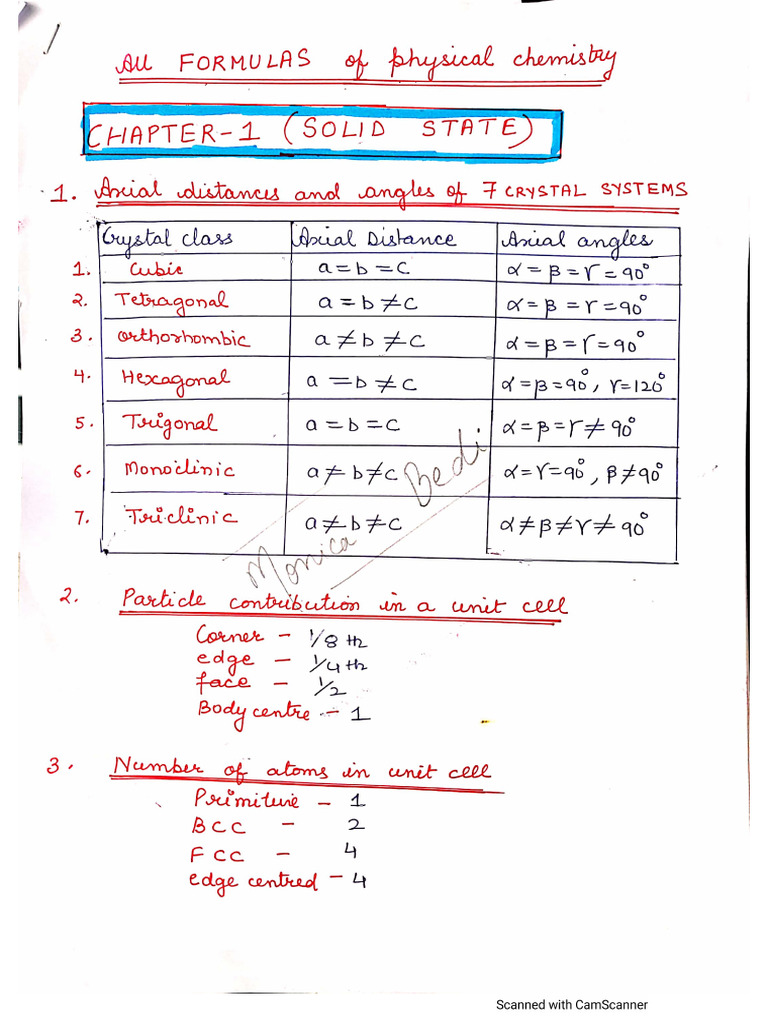 1
All FORMULAS of physical chemistry
CHAPTER-1 (SOLID STATE)
1. Axial distances and angles of 7 CRYSTAL SYSTEMS
Crystal class Axial Distance Axial angles
1. Cubic a = b = c α = β = γ = 90°
2. Tetragonal a = b ≠ c α = β = γ = 90°
3. Orthorhombic a ≠ b ≠ c α = β = γ = 90°
4. Hexagonal a = b ≠ c α = β = 90°, γ = 120°
5. Trigonal a = b = c α = β = γ ≠ 90°
6. Monoclinic a ≠ b ≠ c α = γ = 90°, β ≠ 90°
7. Triclinic a ≠ b ≠ c α ≠ β ≠ γ ≠ 90°
Monica Bedi
2. Particle contribution in a unit cell
Corner - 1/8 th
edge - 1/4 th
face - 1/2
Body centre - 1
3. Number of atoms in unit cell
Primitive - 1
BCC - 2
FCC - 4
edge centred - 4
Scanned with CamScanner